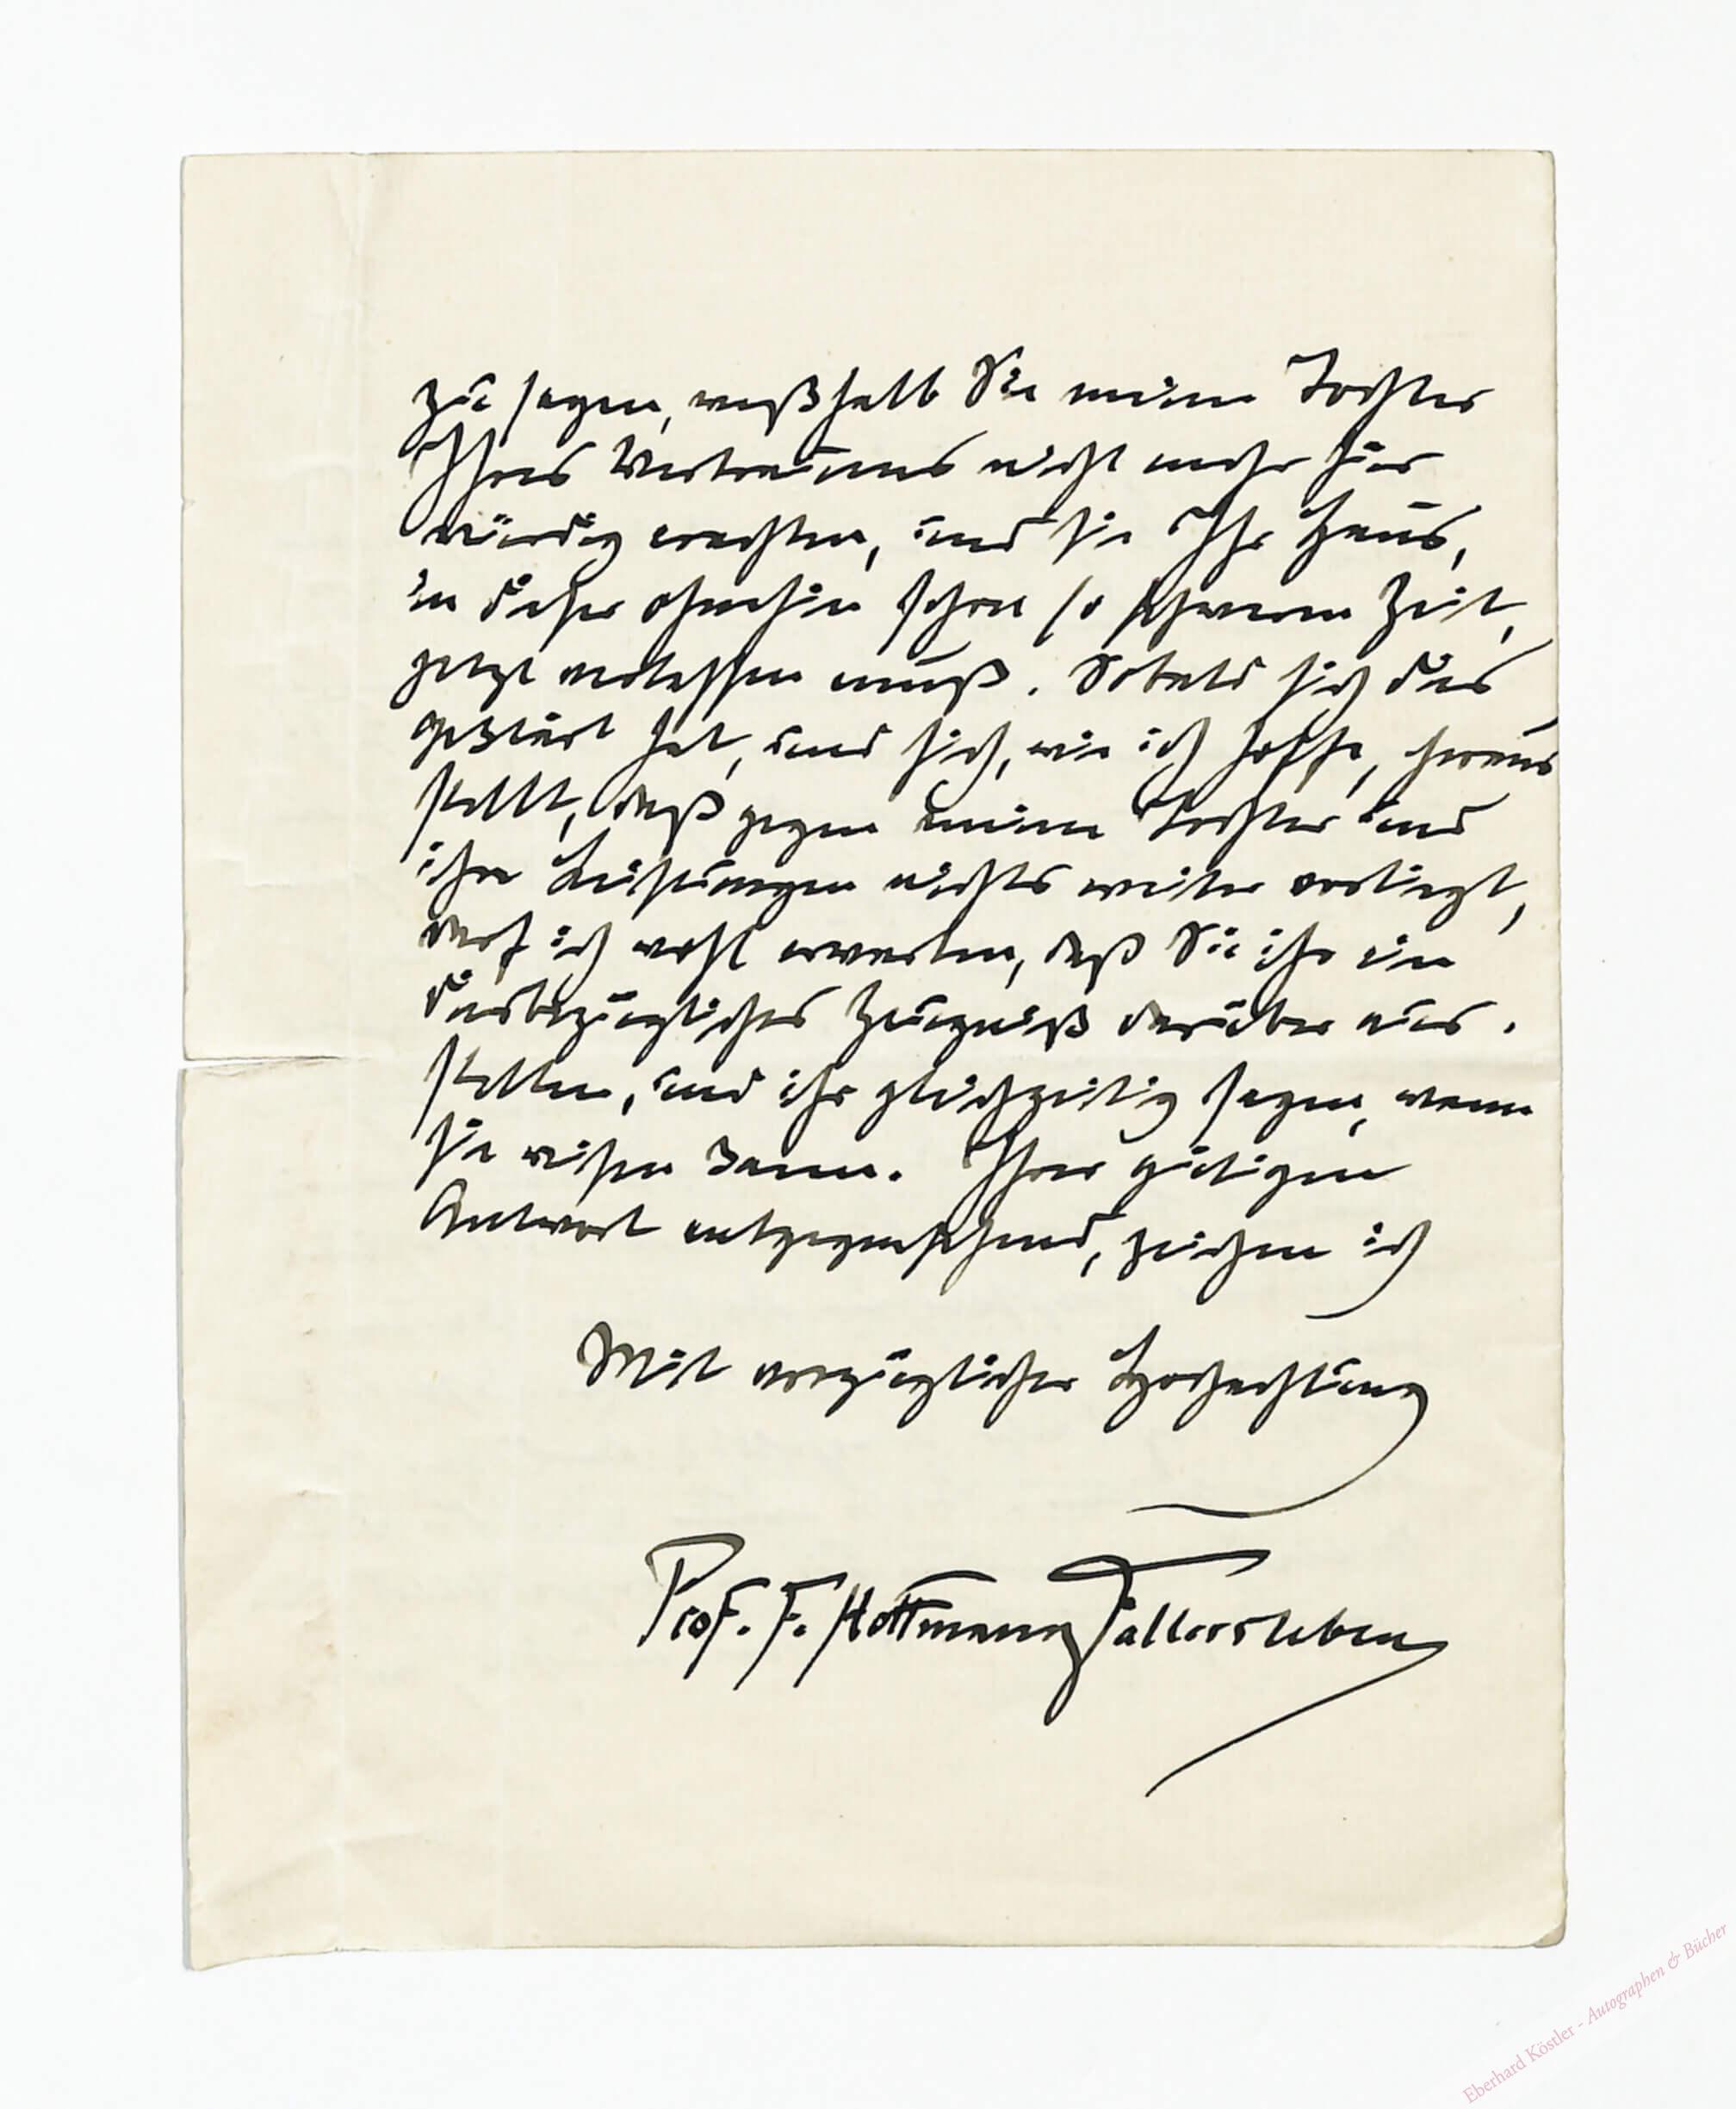 zu sagen, weßhalb Sie meine Tochter
Ihres Vertrauens nicht mehr für
würdig erachten, und sie Ihr Haus,
in dieser ohnehin schon so schweren Zeit,
jetzt verlassen muß. Sobald sich dies
geklärt hat, und sich, wie ich hoffe, heraus
stellt, daß gegen meine Tochter und
ihre Leistungen nichts weiter vorliegt,
darf ich wohl erwarten, daß Sie ihr ein
diesbezügliches Zeugniß darüber aus-
stellen, und ihr gleichzeitig sagen, wann
sie reisen kann. Ihrer gütigen
Antwort entgegensehend, zeichne ich
Mit vorzüglicher Hochachtung
Prof. F. Hoffmann Fallersleben
Eberhard Köstler - Autographen & Bücher